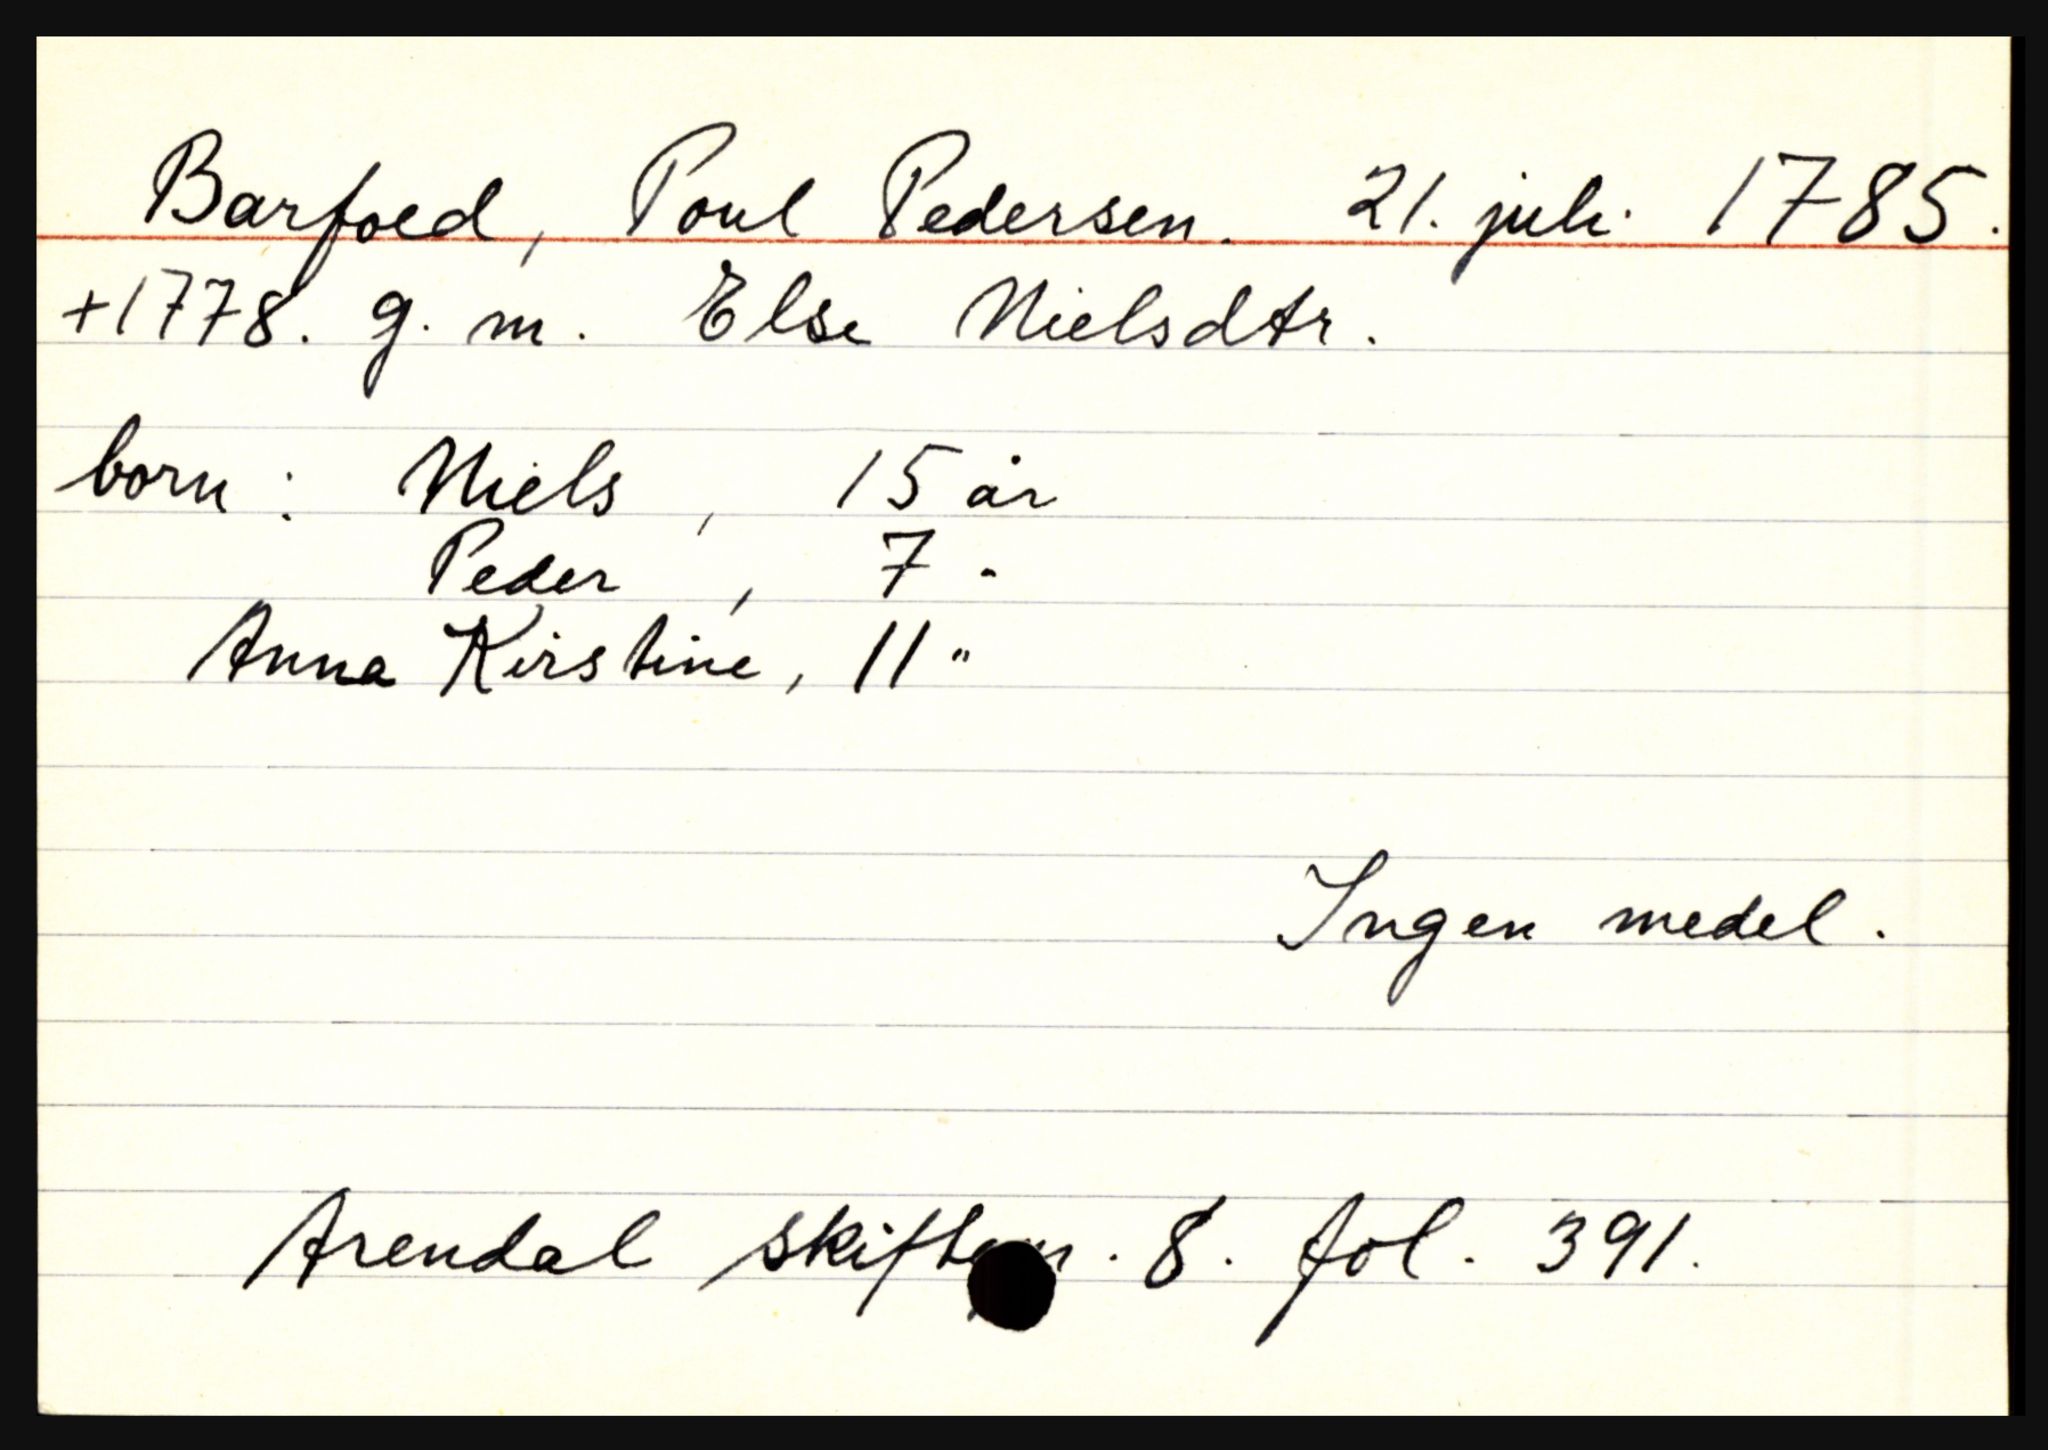 Barfoed, Poul Pedersen. 21. juli 1785.
+1778. g. m. Else Nielsdtr.
born: Niels, 15 år
Peder, 7 "
Anna Kirstine, 11 "
Ingen medel.
Arendal 8. fol. 391.